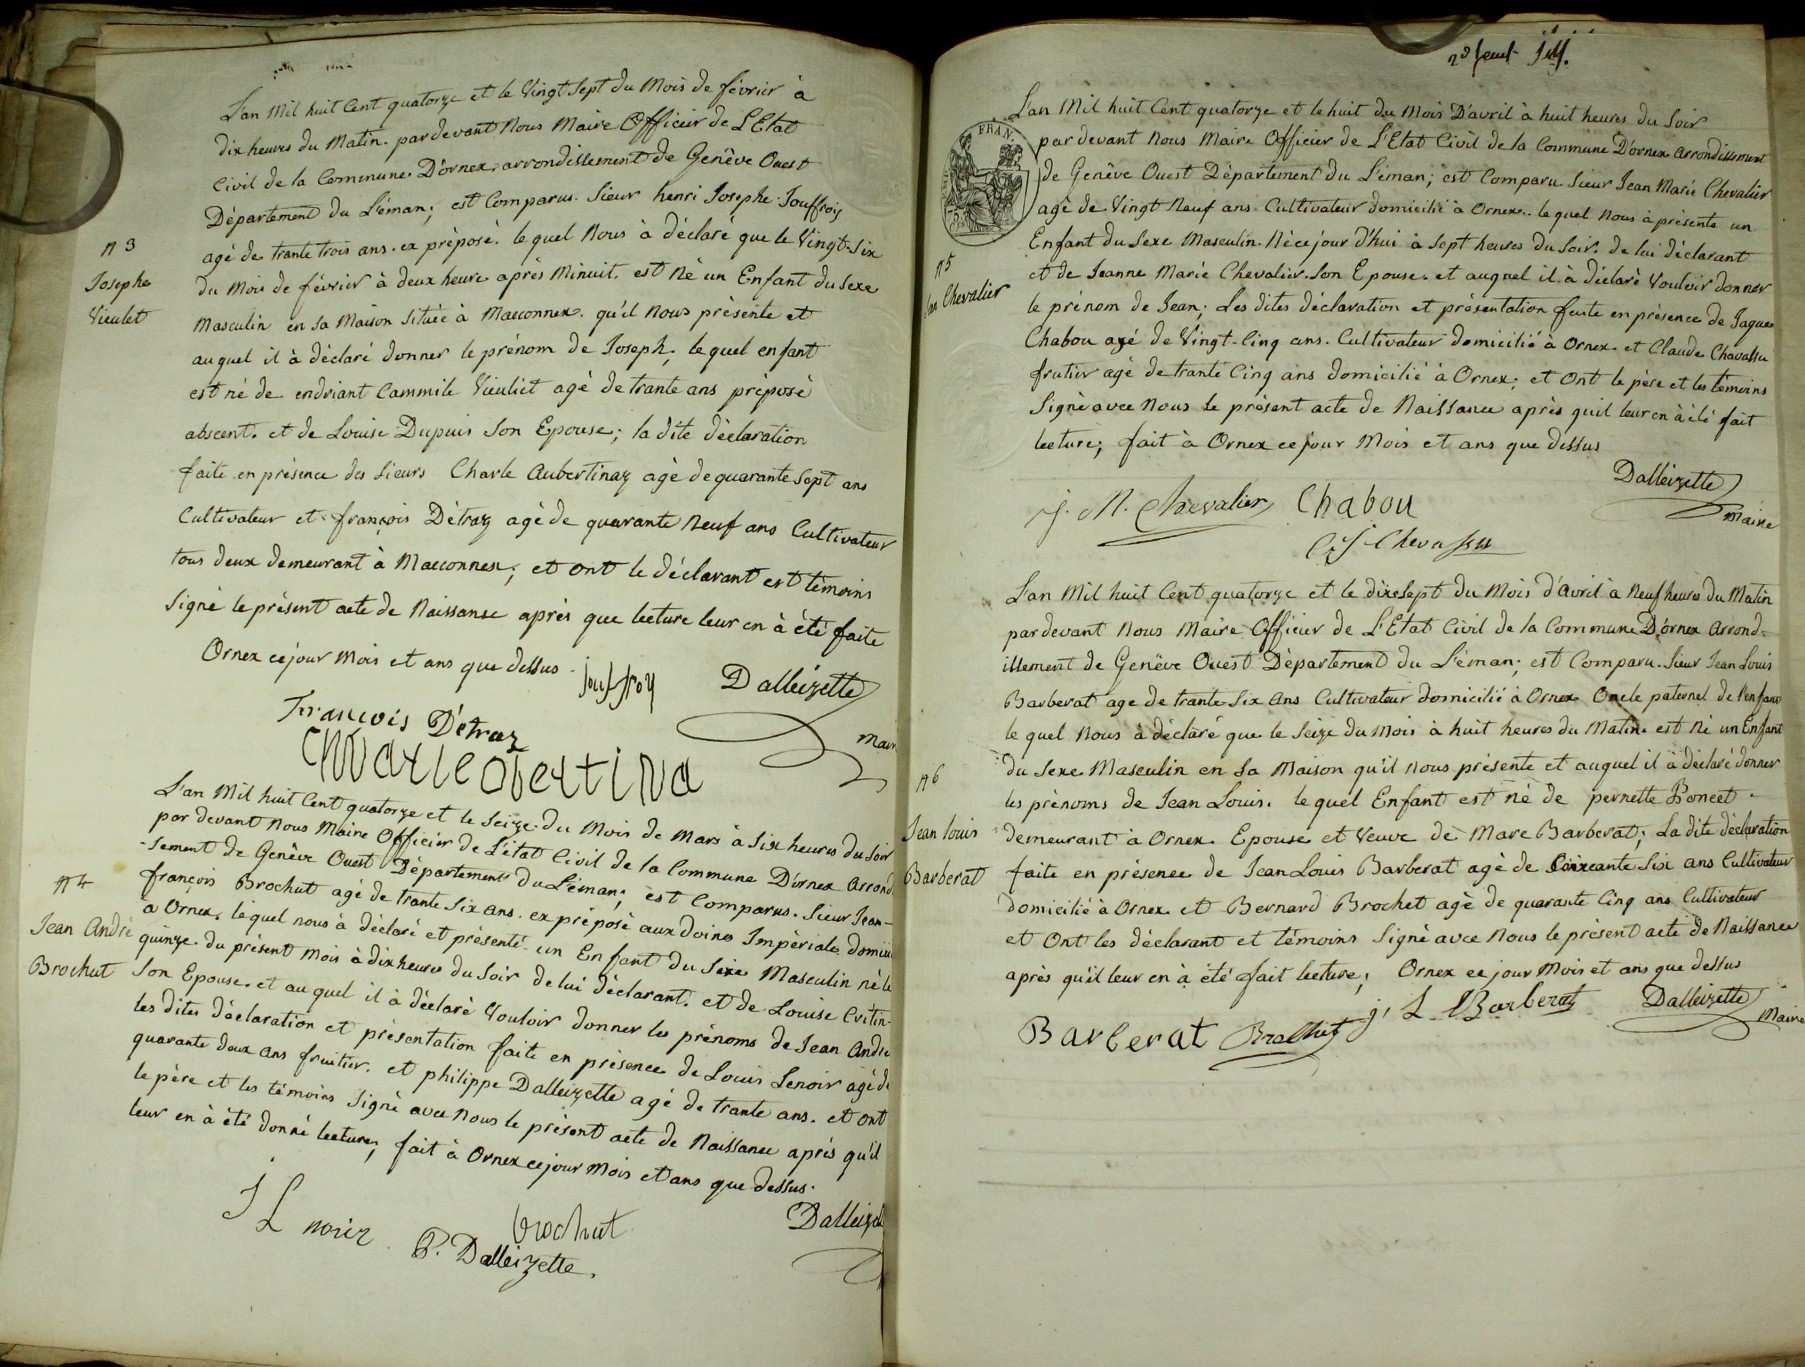 L'an Mil huit Cent quatorze et le Vingt Sept du Mois de février à
dix heures du Matin. pardevant Nous Maire Officier de L'Etat
Civil de la Commune D'ornex, arrondissement de Genève Ouest
Département du Léman; est Comparus Sieur henri Josephe Jouffroy
agé de trante trois ans. ex préposé. le quel Nous à déclaré que le Vingt-Six
du Mois de février à deux heure après Minuit. est Né un Enfant du Sexe
Masculin en sa Maison située à Maconnex. qu'il Nous présente et
auquel il à déclaré donner le prénom de Joseph; le quel enfant
est né de endriant Cammile Vieuliet agé de trante ans préposé
abscent. et de Louise Dupuis Son Epouse; la dite déclaration
faite en présence des Sieurs Charle Aubertinaz agé de quarante Sept ans
Cultivateur et françois Détraz agé de quarante Neuf ans Cultivateur
tous deux demeurant à Maconnex; et ont le déclarant est témoins
Signé le présent acte de Naissanse après que lecture leur en à été faite
Ornex ce jour Mois et ans que dessus
N 3
Josephe
Vieulet
Jouffroy
Dalleizette
Maire
François Détraz
L'an Mil huit Cent quatorze et le Seize du Mois de Mars à Six heures du Soir
par devant Nous Maire Officier de L'état Civil de la Commune D'ornex Arrond
-sement de Genève Ouest Département du Léman; est Comparus. Sieur Jean-
françois Brochut agé de trante Six ans. ex préposé aux Impériale
à Ornex. léquel nous à déclaré et présenté un Enfant du Sexe Masculin né le
quinze du présent Mois à dix heures du Soir de lui déclarant. et de Louise
Son Epouse. et au quel il à déclaré Vouloir donner les prénoms de Jean André
les dites déclaration et présentation faite en présence de Louis Lenoir agé de
quarante deux ans fruitier. et philippe Dalleizette agé de trante ans. et ont
le père et les témoins Signé avec Nous le présent acte de Naissance après qu'il
leur en à été donné lecture; fait à Ornex ce jour Mois et ans que dessus.
N 4
Jean André
Brochut
L noir
brochut
P. Dalleizette.
Dalleizet
L'an Mil huit Cent quatorze et le huit du Mois D'avril à huit heures du Soir
par devant Nous Maire Officier de L'Etat Civil de la Commune D'ornex Arrondissement
de Genève Ouest Département du Léman; est Comparu Sieur Jean Marie Chevalier
agé de Vingt Neuf ans Cultivateur domicilié à Ornex. le quel Nous à présenté un
Enfant du Sexe Masculin. Né ce jour d'hui à Sept heures du Soir. de lui déclarant
et de Jeanne Marie Chevalier. Son Epouse. et auquel il à déclaré Vouloir donner
le prénom de Jean; Les dites déclaration et présentation faite en présence de Jaques
Chabou agé de Vingt-Cinq ans. Cultivateur domicilié à Ornex. et Claude Chavassu
frutier agé de trante Cinq ans domicilié à Ornex; et ont le père et les témoins
Signé avec Nous le présent acte de Naissance après quil leur en à été fait
lecture; fait à Ornex ce jour Mois et ans que dessus
FRAN
N 5
Chevalier
Dalleizette
Maire
j. M. Chevalier
Chabou
L'an Mil huit Cent quatorze et le dixesept du Mois d'avril à Neuf heures du Matin
pardevant Nous Maire Officier de L'Etat Civil de la Commune D'ornex Arrond-
issement de Genève Ouest Département du Léman; est Comparu. Sieur Jean Louis
Barberat age de trante Six ans Cultivateur domicilié à Ornex Oncle paternel de l'enfant
le quel Nous à déclaré que le Seize du Mois à huit heures du Matin. est Né un Enfant
du Sexe Masculin en Sa Maison qu'il Nous présente et auquel il à déclaré donner
les prénoms de Jean Louis. le quel Enfant est né de pernette Poncet.
demeurant à Ornex Epouse et Veuve de Marc Barberat; La dite déclaration
faite en présence de Jean Louis Barberat agé de Six ans Cultivateur
domicilié à Ornex et Bernard Brochet agé de quarante Cinq ans Cultivateur
et ont les déclarant et témoins Signé avec Nous le présent acte de Naissance
après qu'il leur en à été fait lecture; Ornex ce jour Mois et ans que dessus
N 6
Jean louis
Barberat
Barberat
j. L. Barberat
Dalleizette
Maire